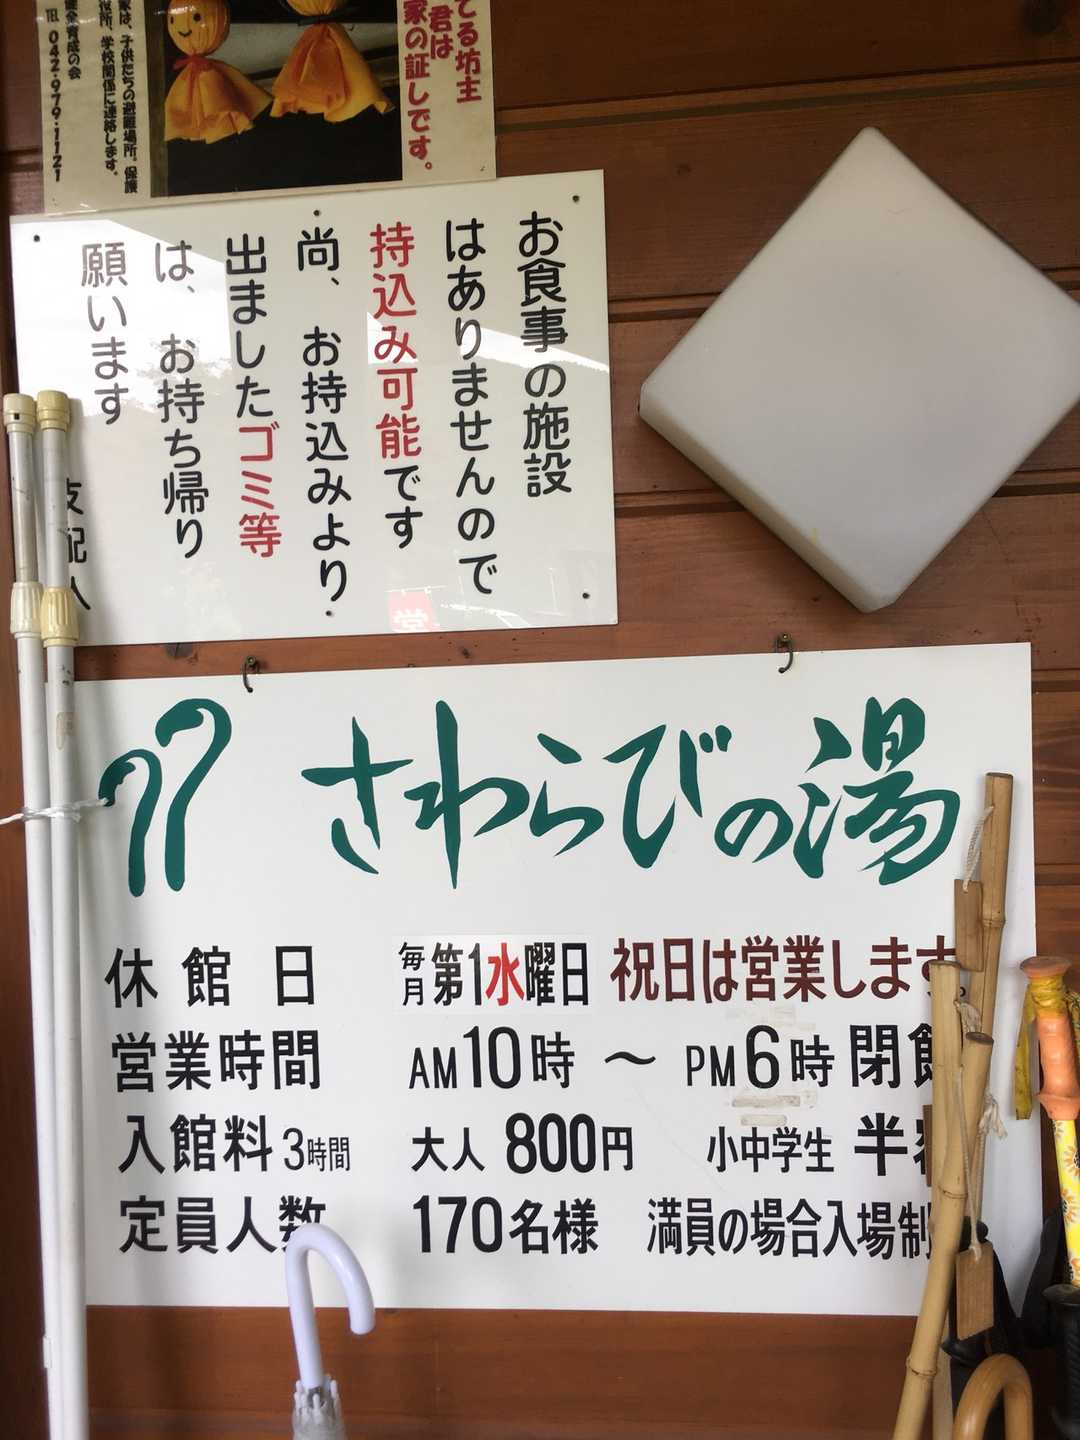 てる坊主
君は
家の証しです。
家は、子供たちの避難場所。保護
役所、学校関係に連絡します。
健全育成の会
TEL 042・979・1121
お食事の施設
はありませんので
持込み可能です
尚、お持込みより
出ましたゴミ等
は、お持ち帰り
願います
支配人
さわらびの湯
休館日 毎月第1水曜日 祝日は営業します。
営業時間 AM10時～PM6時閉館
入館料3時間 大人800円 小中学生 半
定員人数 170名様 満員の場合入場制